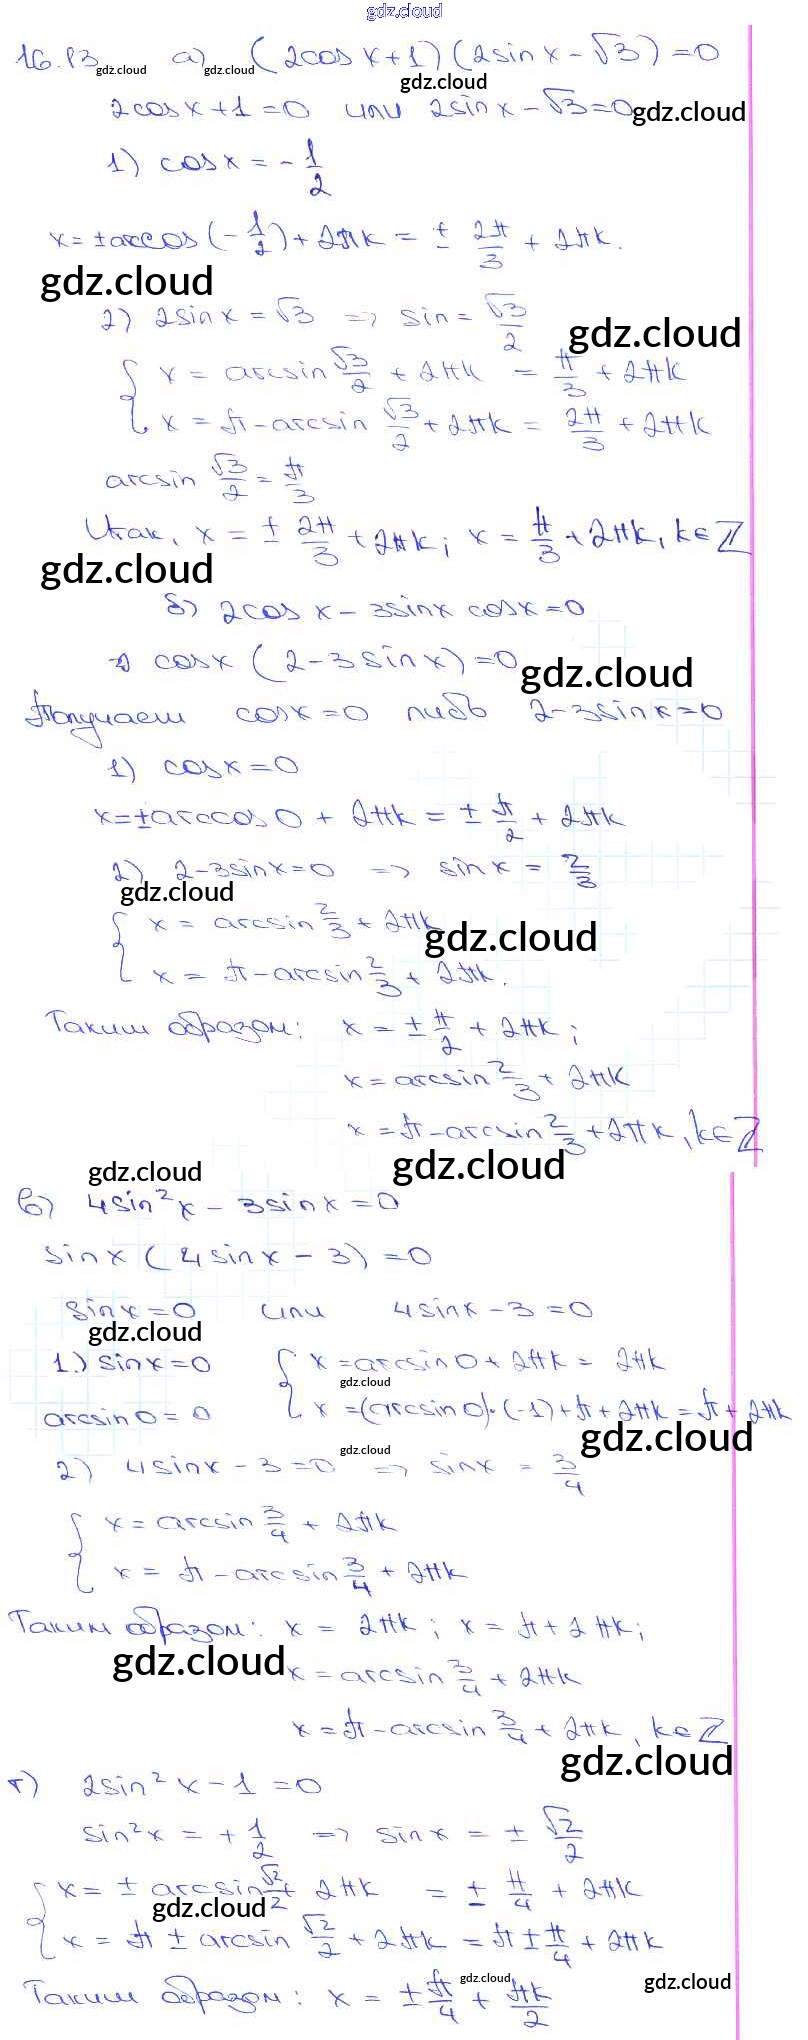 gdz.cloud
16.13 gdz.cloud а) gdz.cloud (2cos x+1)(2sin x-√3)=0
gdz.cloud
2cos x+1=0 или 2sin x-√3=0 gdz.cloud
1) cos x = -1/2
x=±arccos(-1/2)+2πk = ± 2π/3 + 2πk.
gdz.cloud
2) 2sin x = √3 => sin = √3/2
gdz.cloud
{ x = arcsin √3/2 + 2πk = π/3 + 2πk
x = π-arcsin √3/2 + 2πk = 2π/3 + 2πk
arcsin √3/2 = π/3
Итак, x = ± 2π/3 + 2πk; x = π/3 + 2πk, k∈Z
gdz.cloud
б) 2cos x - 3sin x cos x=0
cos x (2-3sin x)=0
gdz.cloud
Получаем cos x=0 либо 2-3sin x=0
1) cos x=0
x=±arccos 0 + 2πk = ± π/2 + 2πk
2) 2-3sin x=0 => sin x = 2/3
gdz.cloud
{ x = arcsin 2/3 + 2πk
gdz.cloud
x = π-arcsin 2/3 + 2πk.
Таким образом: x = ± π/2 + 2πk;
x = arcsin 2/3 + 2πk
x = π-arcsin 2/3 + 2πk, k∈Z
gdz.cloud gdz.cloud
в) 4sin²x - 3sin x=0
sin x (4sin x - 3)=0
sin x=0 или 4sin x-3=0
gdz.cloud
1.) sin x=0 { x=arcsin 0 + 2πk = 2πk
gdz.cloud
arcsin 0 = 0 x=(arcsin 0)·(-1)+π+2πk=π+2πk
gdz.cloud
gdz.cloud
2) 4sin x - 3=0 => sin x = 3/4
{ x = arcsin 3/4 + 2πk
x = π-arcsin 3/4 + 2πk
Таким образом: x = 2πk; x = π+2πk;
gdz.cloud
x = arcsin 3/4 + 2πk
x = π-arcsin 3/4 + 2πk, k∈Z
gdz.cloud
г) 2sin²x-1=0
sin²x = + 1/2 => sin x = ± √2/2
{ x = ± arcsin √2/2 + 2πk = ± π/4 + 2πk
gdz.cloud
x = π ± arcsin √2/2 + 2πk = π ± π/4 + 2πk
gdz.cloud gdz.cloud
Таким образом: x = ± π/4 + πk/2